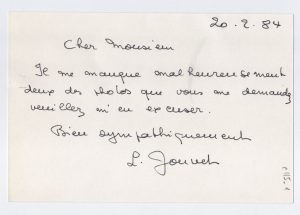 20.2.84
Cher Monsieur
Il me manque malheureusement
deux des photos que vous me demandez
veuillez m'en excuser.
Bien sympathiquement
L. Jouvet